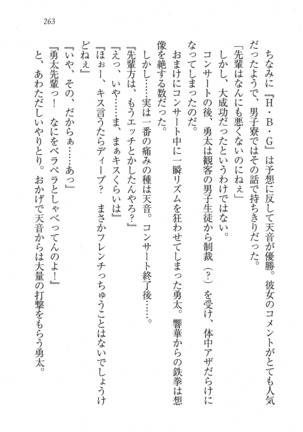 263
ちなみに『H・B・G』は予想に反して天音が優勝。彼女のコメントがとても人気
だったようで、男子寮ではその話で持ちきりだった。
「先輩はなんにも悪くないのにねぇ」
しかし、大成功だったというわけではない。
コンサートの後、勇太は観客の男子生徒から制裁（？）を受け、体中アザだらけに
なってしまった。
おまけにコンサート中に一瞬リズムを狂わせてしまった勇太。響華からの鉄拳は想
像を絶する数だった。
しかし……実は一番の痛みの種は天音。コンサート終了後……。
「先輩方は、もうエッチとかしたんやろ？」
「えっ、いや……ま、まぁキスくらいは」
「ほぉー、キス言うたらディープ？　まさかフレンチっちゅうことはないでしょうけ
どねぇ」
「いや、その、だからぁ……あっ」
「勇太先輩っ！　なにをペラペラとしゃべってんのよ！」
と、あわただしいやりとり。おかげで天音からは大量の打撃をもらう勇太。